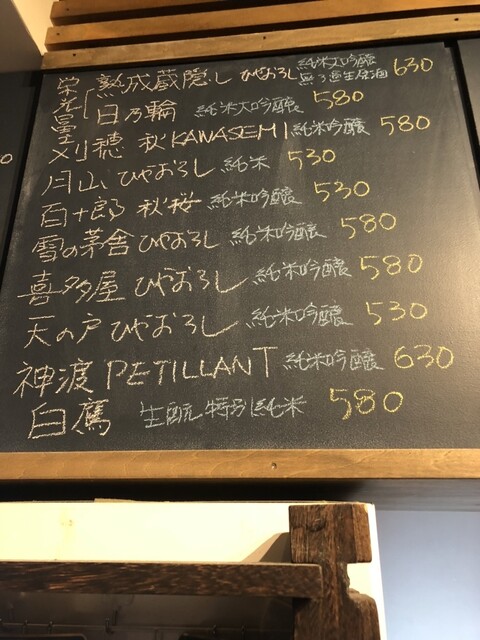 栄光冨士 熟成蔵隠し ひやおろし 純米大吟醸 無ろ過生原酒 630
日乃輪 純米大吟醸 580
刈穂 秋KAWASEMI 純米吟醸 580
月山 ひやおろし 純米 530
百十郎 秋桜 純米吟醸 530
雪の茅舎 ひやおろし 純米吟醸 580
喜多屋 ひやおろし 純米吟醸 580
天の戸 ひやおろし 純米吟醸 530
神渡 PETILLANT 純米吟醸 630
白鷹 生酛特別純米 580